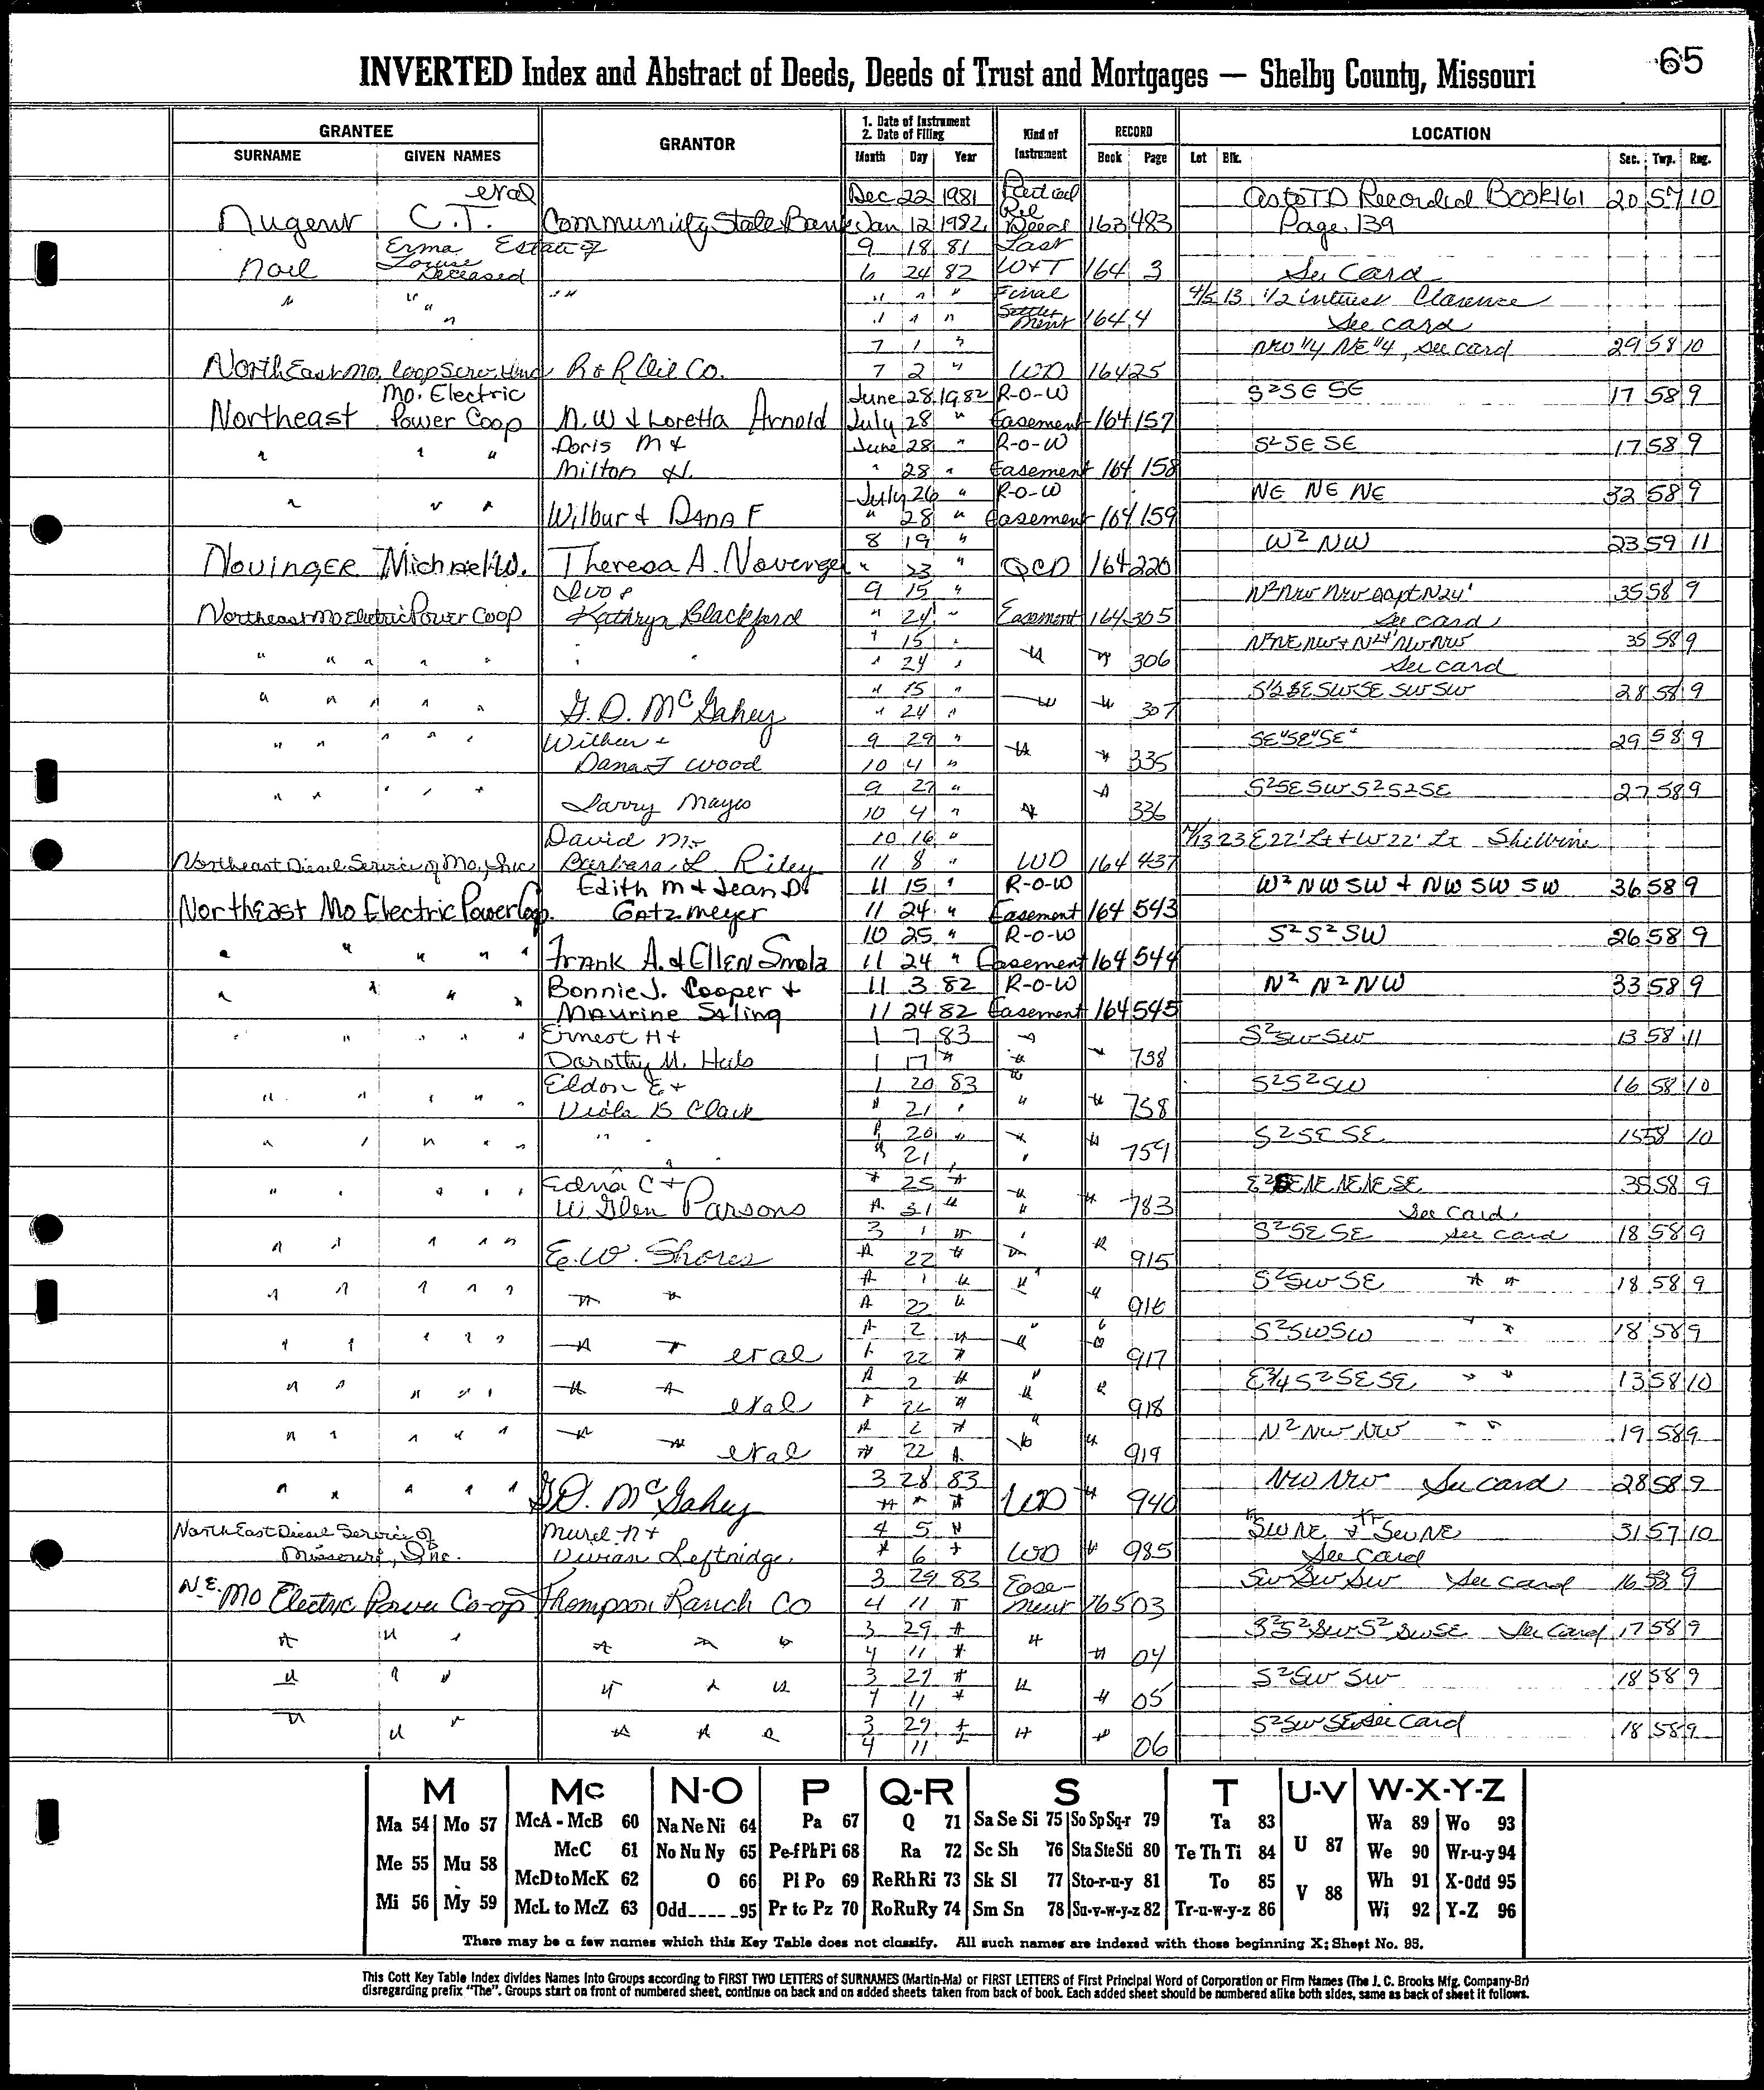 65
INVERTED Index and Abstract of Deeds, Deeds of Trust and Mortgages — Shelby County, Missouri
GRANTEE GRANTOR 1. Date of Instrument 2. Date of Filing Kind of Instrument RECORD LOCATION
SURNAME GIVEN NAMES Month Day Year Book Page Lot Blk. Sec. Twp. Rng.
etal Dec 22 1981 Partial as to TD Recorded Book 161 20 57 10
Nugent C.T. Community State Bank Jan 12 1982 Rel Deed 163 483 Page 139
Erma Estate of 9 18 81 Last
Noel Louise Deceased 6 24 82 W+T 164 3 See Card
" " " " " " " " Final 4/5 13 1/2 interest Clarence
" " " " Settlement 164 4 See card
7 1 " NW 1/4 NE 1/4, see card 29 58 10
NorthEast Mo. Coop Serv. R & R Oil Co. 7 2 " WD 164 25
Mo. Electric June 28 1982 R-O-W S2 SE SE 17 58 9
Northeast Power Coop N.W & Loretta Arnold July 28 " Easement 164 157
Doris M & June 28 " R-O-W S2 SE SE 17 58 9
" " " Milton H. " 28 " Easement 164 158
July 26 " R-O-W NE NE NE 32 58 9
" " " Wilbur & Dana F " 28 " Easement 164 159
8 19 " W2 NW 23 59 11
Novinger Michael W. Theresa A. Novinger " 23 " QCD 164 220
Ivo & 9 15 " N2 NW NW except N24' 35 58 9
Northeast Mo Electric Power Coop Kathryn Blackford " 24 " Easement 164 305 See card
" 15 " N2 NE NW + N24' NW NW 35 58 9
" " " " " " " " 24 " " " 306 See card
" 15 " S1/2 SE SW SE SW SW 28 58 9
" " " " " G. D. McGahey " 24 " " " 307
Wilbur & 9 29 " SE SE SE 29 58 9
" " " " " Dana F Wood 10 4 " " " 335
9 27 " " S2 SE SW S2 S2 SE 27 58 9
" " " " " Larry Mayes 10 4 " " 336
David M & 10 16 " 7/13 23 E22' Lt + W22' Lt Shelbina
Northeast Diesel Service of Mo., Inc Barbara L Riley 11 8 " WD 164 437
Edith M & Jean D. 11 15 " R-O-W W2 NW SW + NW SW SW 36 58 9
Northeast Mo Electric Power Coop. Gatzmeyer 11 24 " Easement 164 543
10 25 " R-O-W S2 S2 SW 26 58 9
" " " " " Frank A. & Ellen Smola 11 24 " Easement 164 544
Bonnie J. Cooper & 11 3 82 R-O-W N2 N2 NW 33 58 9
" " " " Maurine Saling 11 24 82 Easement 164 545
Ernest H & 1 7 83 " S2 SW SW 13 58 11
" " " " " Dorothy M. 1 17 " " " 738
Eldon E & 1 20 83 " S2 S2 SW 16 58 10
" " " " " Viola B Clark " 21 " " " 758
" " " 20 " " " S2 SE SE 15 58 10
" " " " " " 21 " " 759
Edna C & " 25 " E2 SE NE NE NE SE 35 58 9
" " " " " W. Glen Parsons " 31 " " " 783 See Card
3 1 " " S2 SE SE see card 18 58 9
" " " " " E.W. Shores " 22 " " " 915
" 1 " " S2 SW SE " " 18 58 9
" " " " " " " " 22 " " 916
" 2 " " " S2 SW SW " " 18 58 9
" " " " " " " etal " 22 " " " 917
" 2 " " E3/4 S2 SE SE " " 13 58 10
" " " " " " " etal " 22 " " " 918
" 2 " " N2 NW NW " " 19 58 9
" " " " " " " etal " 22 " " " 919
3 28 83 NW NW See card 28 58 9
" " " " " G.D. McGahey " " " WD " 940
NorthEast Diesel Service of Murel N & 4 5 " SW NE & SW NE 31 57 10
Missouri, Inc. Vivian Leftridge " 6 " WD " 985 See Card
3 29 83 Ease- SW SW SW See card 16 58 9
N.E. Mo Electric Power Co-op Thompson Ranch Co 4 11 " ment 165 03
3 29 " S2 S2 SW S2 SW SE See Card 17 58 9
" " " " " " 4 11 " " " 04
3 29 " S2 SW SW 18 58 9
" " " " " " 4 11 " " " 05
3 29 " S2 SW SE See Card 18 58 9
" " " " " " 4 11 " " " 06
M Mc N-O P Q-R S T U-V W-X-Y-Z
Ma 54 Mo 57 McA - McB 60 Na Ne Ni 64 Pa 67 Q 71 Sa Se Si 75 So Sp Sq-r 79 Ta 83 Wa 89 Wo 93
McC 61 No Nu Ny 65 Pe-f Ph Pi 68 Ra 72 Sc Sh 76 Sta Ste Sti 80 Te Th Ti 84 U 87 We 90 Wr-u-y 94
Me 55 Mu 58 McD to McK 62 O 66 Pl Po 69 Re Rh Ri 73 Sk Sl 77 Sto-r-u-y 81 To 85 Wh 91 X-Odd 95
Mi 56 My 59 McL to McZ 63 Odd 95 Pr to Pz 70 Ro Ru Ry 74 Sm Sn 78 Su-v-w-y-z 82 Tr-u-w-y-z 86 V 88 Wi 92 Y-Z 96
There may be a few names which this Key Table does not classify. All such names are indexed with those beginning X; Sheet No. 95.
This Cott Key Table Index divides Names Into Groups according to FIRST TWO LETTERS of SURNAMES (Martin-Ma) or FIRST LETTERS of First Principal Word of Corporation or Firm Names (The J. C. Brooks Mfg. Company-Br)
disregarding prefix "The". Groups start on front of numbered sheet, continue on back and on added sheets taken from back of book. Each added sheet should be numbered alike both sides, same as back of sheet it follows.